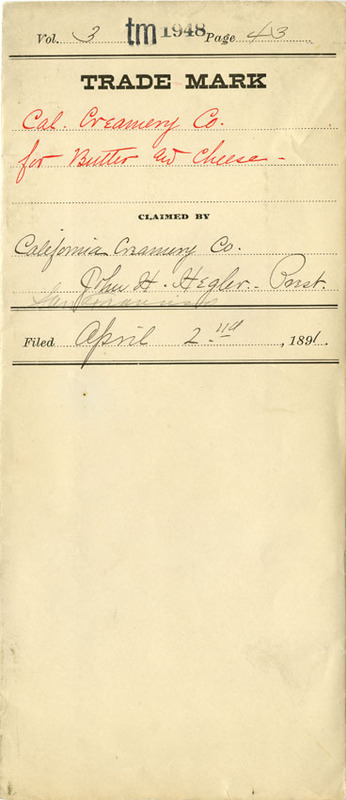 Vol. 3 tm 1948 Page 43
TRADE MARK
Cal. Creamery Co.
for Butter and Cheese -
CLAIMED BY
California Creamery Co.
John H. Hegler - Prest.
San Francisco
Filed April 2nd, 1891.